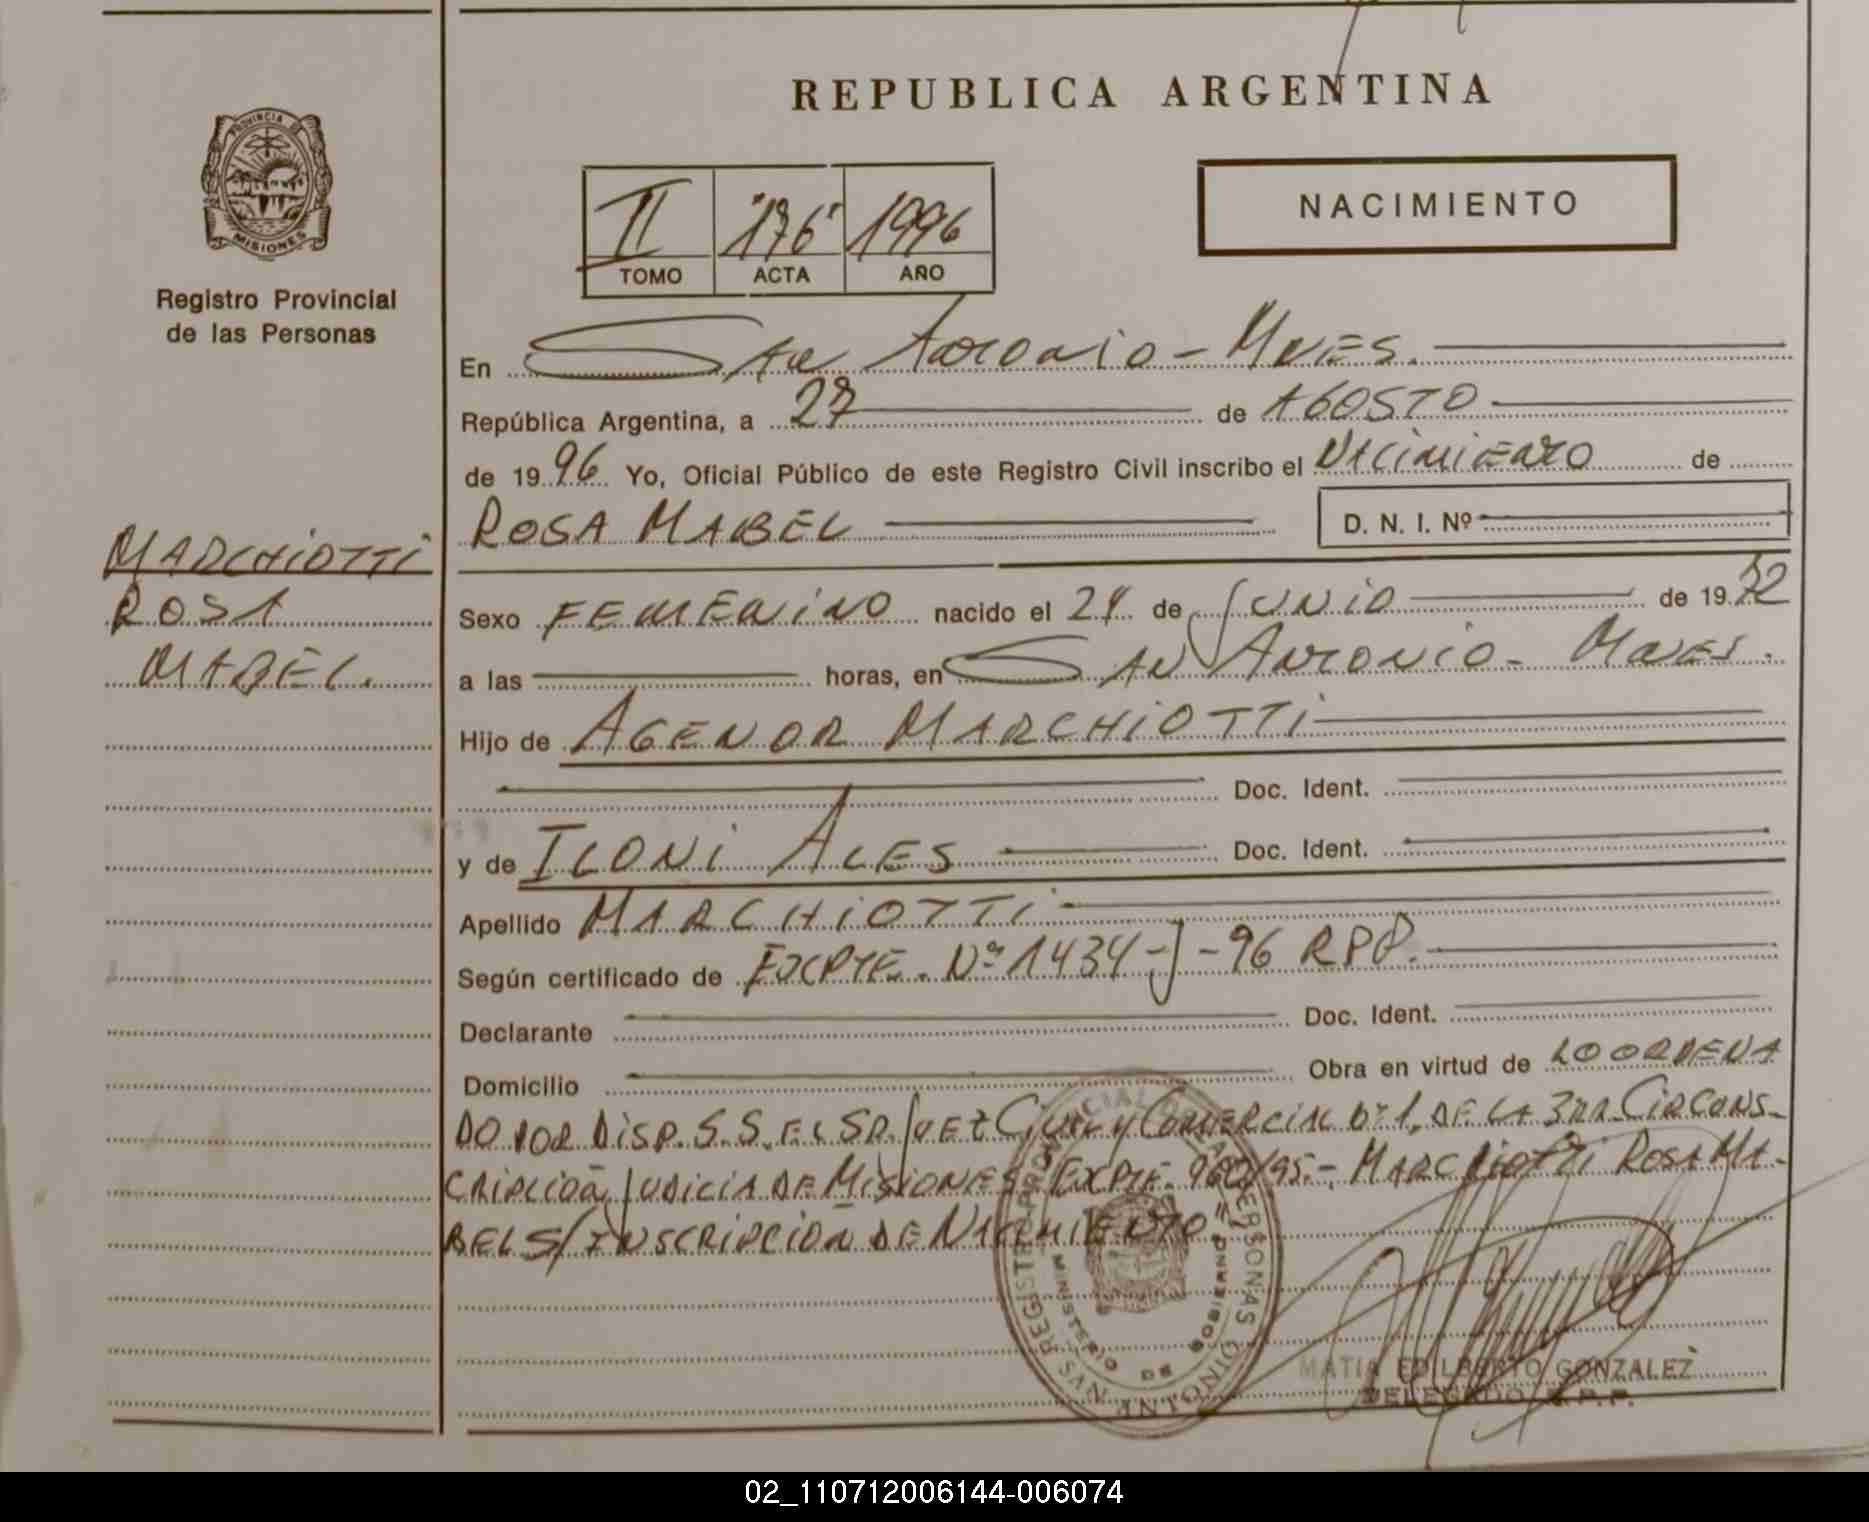 REPUBLICA ARGENTINA
PROVINCIA DE
MISIONES
Registro Provincial
de las Personas
NACIMIENTO
II "176" 1996
TOMO ACTA AÑO
En San Antonio - Mnes.
República Argentina, a 27 de AGOSTO
de 1996 Yo, Oficial Público de este Registro Civil inscribo el NACIMIENTO de
ROSA MABEL D. N. I. Nº
MARCHIOTTI
ROSA
MABEL.
Sexo FEMENINO nacido el de JUNIO de 19
a las horas, en SAN ANTONIO - Mnes.
Hijo de AGENOR MARCHIOTTI
Doc. Ident.
y de ILONI ALES Doc. Ident.
Apellido MARCHIOTTI
Según certificado de EXCPTE. Nº 1434-J-96 RPP.
Declarante Doc. Ident.
Domicilio Obra en virtud de LO ORDENA
DO POR DISP. S.S. EL SR. JUEZ CIVIL y COMERCIAL Nº 1, DE LA 3RA. CIRCONS-
CRIPCIÓN JUDICIA DE MISIONES EXCPTE. /95.- MARCHIOTTI ROSA MA-
BEL S/INSCRIPCIÓN DE NACIMIENTO"
REGISTRO PROVINCIAL DE LAS PERSONAS
MINISTERIO DE GOBIERNO
SAN ANTONIO
MATIA EDILBERTO GONZALEZ
DELEGADO R.P.P.
02_110712006144-006074